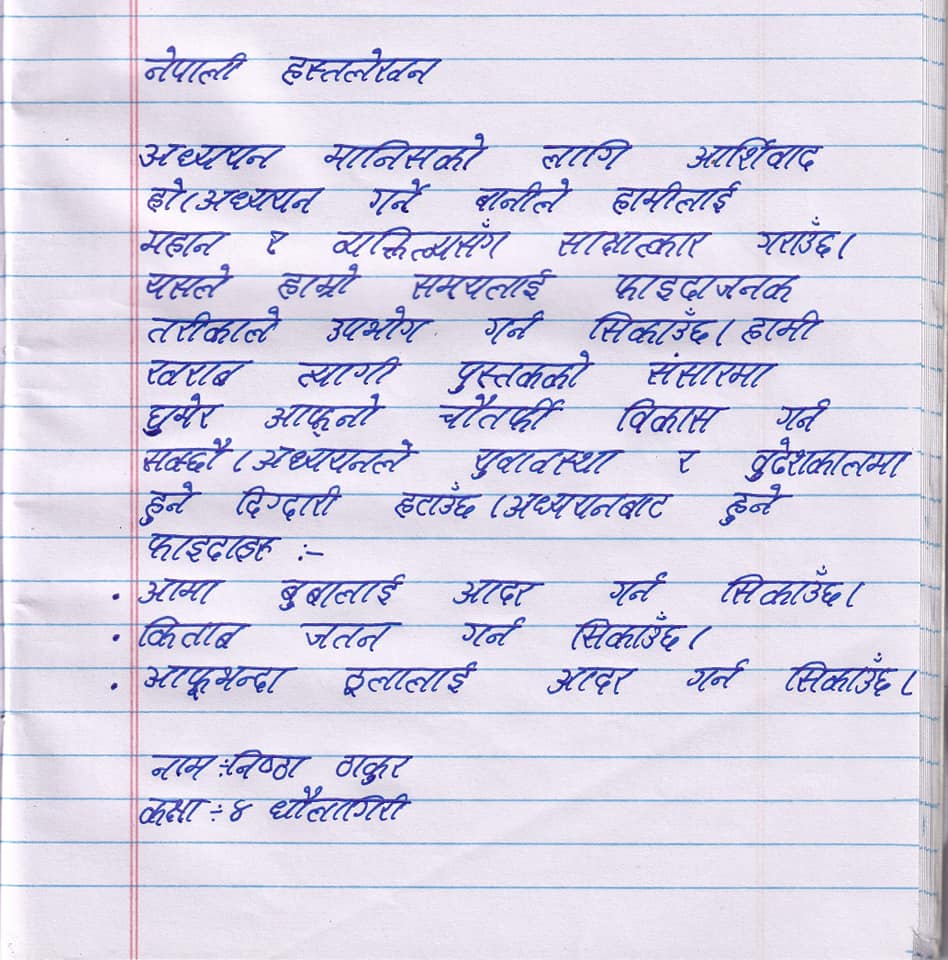 नेपाली हस्तलेखन
अध्ययन मानिसको लागि आर्शिवाद
हो।अध्ययन गर्ने बानीले हामीलाई
महान र व्यक्तित्वसँग साक्षात्कार गराउँछ।
यसले हाम्रो समयलाई फाइदाजनक
तरीकाले उपभोग गर्न सिकाउँछ। हामी
खराब त्यागी पुस्तकको संसारमा
घुमेर आफ्नो चौतर्फी विकास गर्न
सक्छौ।अध्ययनले युवावस्था र वुढेशकालमा
हुने दिग्दारी हटाउँछ।अध्ययनबाट हुने
फाइदाहरु :-
. आमा बुबालाई आदर गर्न सिकाउँछ।
. किताब जतन गर्न सिकाउँछ।
. आफूभन्दा ठूलालाई आदर गर्न सिकाउँछ।
नाम ÷निष्ठा ठाकुर
कक्षा ÷४ धौलागिरी